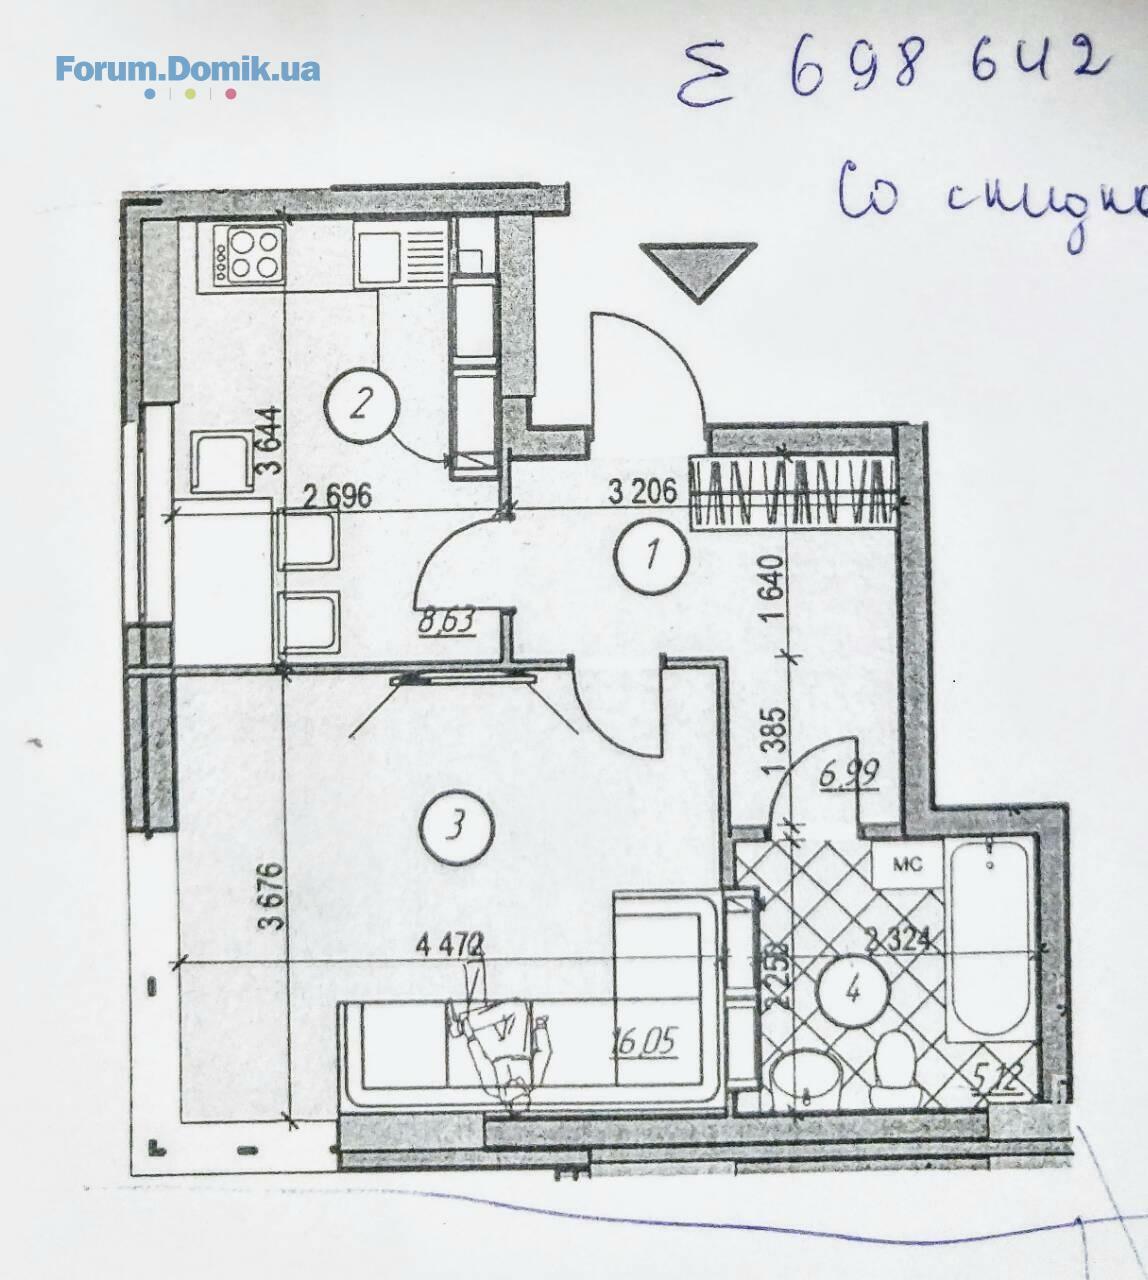 Forum.Domik.ua
Σ 698 642
Со скидко
2
3 644
2 696
3 206
1
1 640
8,63
1 385
6,99
3
МС
3 676
4 472
2 324
2 258
4
16,05
5,12